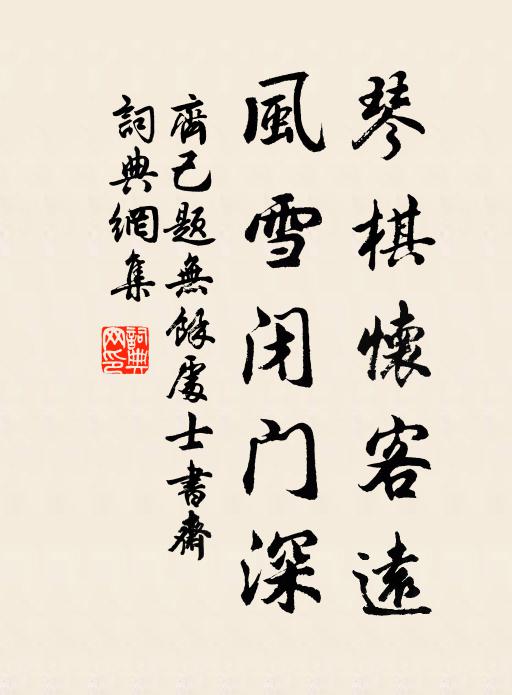 琴棋懷客遠
風雪闭门深
齊己題無餘處士書齋
詞典網集
詞典网印